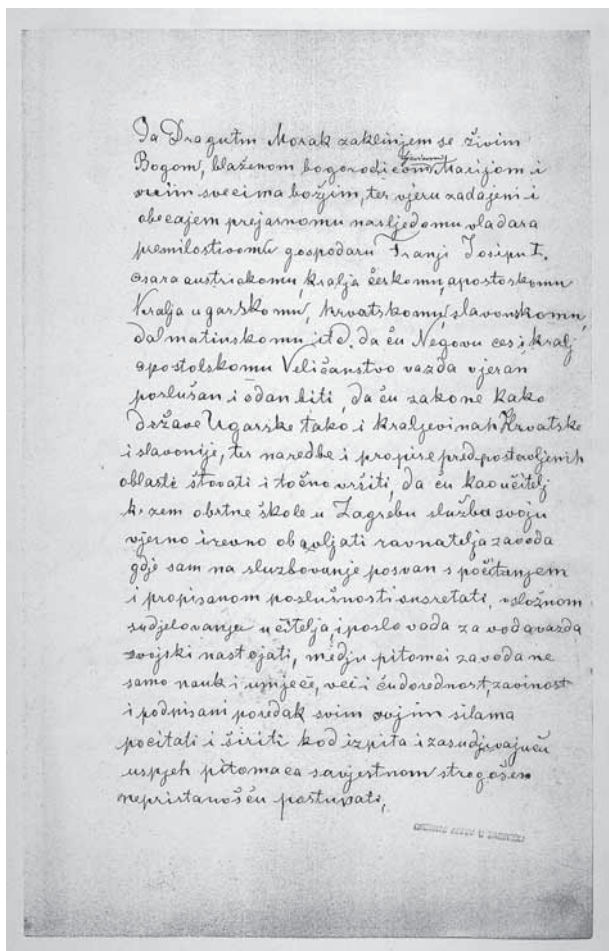 Ja Dragutin Morak zaklinjem se živim
Bogom, blaženom bogorodicom Marijom i
svim svecima božjim, ter vjeru zadajem i
obećajem prejasnomu nasljedomu vladara
premilostivomu gospodaru Franji Josipu I.
cesara austriskomu, kralja českomu, apostoskomu
Kralja ugarskomu, hrvatskomu, slavonskomu,
dalmatinskomu itd. da ću Negovu ces. i kralj
apostolskomu Veličanstvo vazda vjeran
poslušan i odan biti, da ću zakone kako
države Ugarske tako i kraljevinah Hrvatske
i slavonije, ter naredbe i propise predpostavljenih
oblasti štovati i točno vršiti, da ću kao učitelj
k. zem obrtne škole u Zagrebu služba svoju
vjerno i revno obavljati ravnatelja zavoda
gdje sam na službovanje pozvan s počitanjem
i propisanom poslušnosti susretati, u složnom
sudjelovanju učitelja, i poslovođa zavoda vazda
svojski nastojati, medju pitomci zavoda ne
samo nauk i umjeće, već i ćudorednost,
i podpisani poredak svim svojim silama
pocitati i širiti kod izpita i zasudjivajuću
uspjeh pitomaca savjestnom strogošću
nepristanošću postupati,